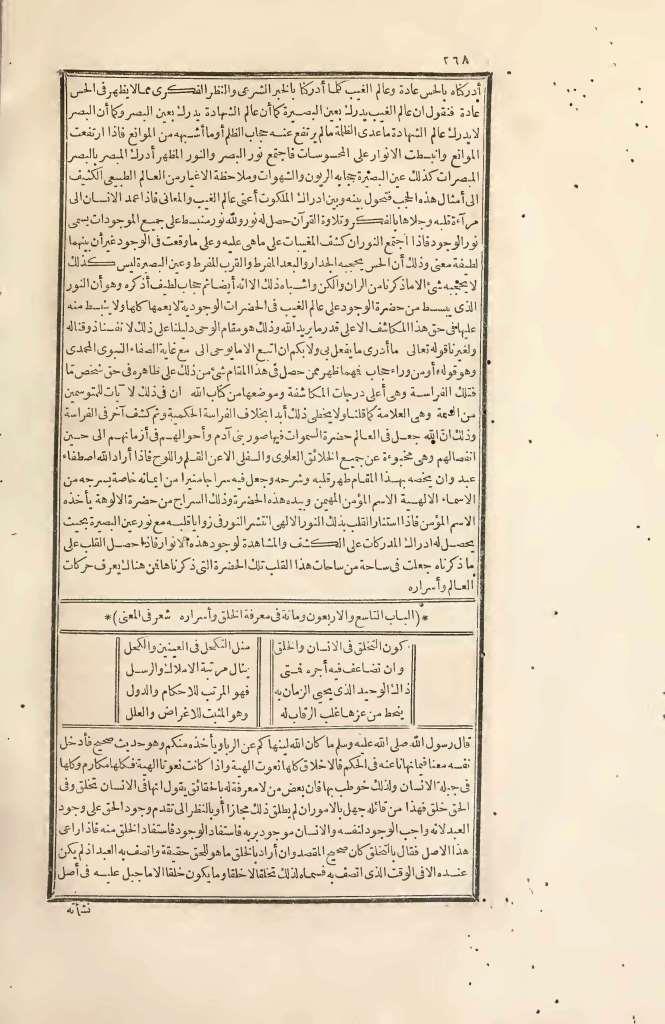 ٢٦٨
أدركناه بالحس عادة وعالم الغيب كما أدركنا بالخبر الشرعى والنظر الفكرى مما لا يظهر فى الحس
عادة فنقول ان عالم الغيب يدرك بعين البصيرة كما أن عالم الشهادة يدرك بعين البصر وكما أن البصر
لا يدرك عالم الشهادة ماعدى الظلمة ما لم يرتفع عنه حجاب الظلم أو ما أشبهه من الموانع فاذا ارتفعت
الموانع وانبسطت الانوار على المحسوسات فاجتمع نور البصر والنور المظهر أدرك المبصر بالبصر
المبصرات كذلك عين البصيرة حجابه الريون والشهوات وملاحظة الاغيار من العالم الطبيعى الكثيف
الى أمثال هذه الحجب فتحول بينه وبين ادراك الملكوت أعنى عالم الغيب والمعانى فاذا عمد الانسان الى
مرآءة قلبه وجلاها بالفكر وتلاوة القرآن حصل له نور ولله نور منبسط على جميع الموجودات يسمى
نور الوجود فاذا اجتمع النوران كشف المغيبات على ماهى عليه وعلى ما وقعت فى الوجود غير أن بينهما
لطيفة معنى وذلك أن الحس يحجبه الجدار والبعد المفرط والقرب المفرط وعين البصيرة ليس كذلك
لا يحجبه شئ الا ماذكرنا من الران والكن واشباه ذلك الا انه أيضا ثم حجاب لطيف أذكره وهو أن النور
الذى ينبسط من حضرة الوجود على عالم الغيب فى الحضرات الوجودية لا يعمها كلها ولا ينبسط منه
عليها فى حق هذا المكاشف الا على قدر ما يريد الله وذلك هو مقام الوحى دليلنا على ذلك لانفسنا ذوقنا له
ولغيرنا قوله تعالى ما أدرى ما يفعل بى ولا بكم ان اتبع الا ما يوحى الى مع غاية الصفاء النبوى المحمدى
وهو قوله أو من وراء حجاب فهما ظهر ممن حصل فى هذا المقام شئ من ذلك على ظاهره فى حق شخص تما
فتلك الفراسة وهى أعلى درجات المكاشفة وموضعها من كتاب الله ان فى ذلك لآيات للمتوسمين
من السمة وهى العلامة كما قلنا ولا يخطى ذلك أبدا بخلاف الفراسة الحكمية وثم كشف آخر فى الفراسة
وذلك ان الله جعل فى العالم حضرة السموات فيها صور بنى آدم وأحوالهم فى أزمانهم الى حين
انفصالهم وهى مخبوءة عن جميع الخلائق العلوى والسفلى الا عن القلم واللوح فاذا أراد الله اصطفاء
عبد وان يخصه بهذا المقام طهر قلبه وشرحه وجعل فيه سراجا منيرا من ايمانه خاصة يسرجه من
الاسماء الالهية الاسم المؤمن المهيمن وبيده هذه الحضرة وذلك السراج من حضرة الالوهة يأخذه
الاسم المؤمن فاذا استنار القلب بذلك النور الالهى انتشر النور فى زوايا قلبه مع نور عين البصيرة بحيث
يحصل له ادراك المدركات على الكشف والمشاهدة لوجود هذه الانوار فاذا حصل القلب على
ما ذكرناه جعلت فى ساحة من ساحات هذا القلب تلك الحضرة التى ذكرناها فمن هناك يعرف حركات
العالم وأسراره
*(الباب التاسع والاربعون ومائة فى معرفة الخلق وأسراره شعر فى المعنى)*
كون التخلق فى الانسان والخلق مثل التكحل فى العينين والكحل
وان تضاعف فيه أجره فتى ينال مرتبة الاملاك والرسل
ذاك الوحيد الذى يحيى الزمان به فهو المرتب للاحكام والدول
ينحط من عزها غلب الرقاب له وهو المثبت للاغراض والعلل
قال رسول الله صلى الله عليه وسلم ما كان الله لينهاكم عن الربا ويأخذه منكم وهو حديث صحيح فأدخل
نفسه معنا فيما نهانا عنه فى الحكم فالاخلاق كلها نعوت الهية واذا كانت نعوتا الهية فكلها مكارم وكلها
فى جبلة الانسان ولذلك خوطب بها فان بعض من لا معرفة له بالحقائق يقول انها فى الانسان تخلق وفى
الحق خلق فهذا من قائله جهل بالامور ان لم يطلق ذلك مجازا أو بالنظر الى تقدم وجود الحق على وجود
العبد لانه واجب الوجود لنفسه والانسان موجود بربه فاستفاد الوجود فاستفاد الخلق منه فاذا راعى
هذا الاصل فقال بالتخلق كان صحيح المقصد وان أراد بالخلق ما هو للحق حقيقة واتصف به العبد اذ لم يكن
عنده الا فى الوقت الذى اتصف به فسماه لذلك تخلقا لا خلقا وما يكون خلقا الا ما جبل عليه فى أصل
نشأته